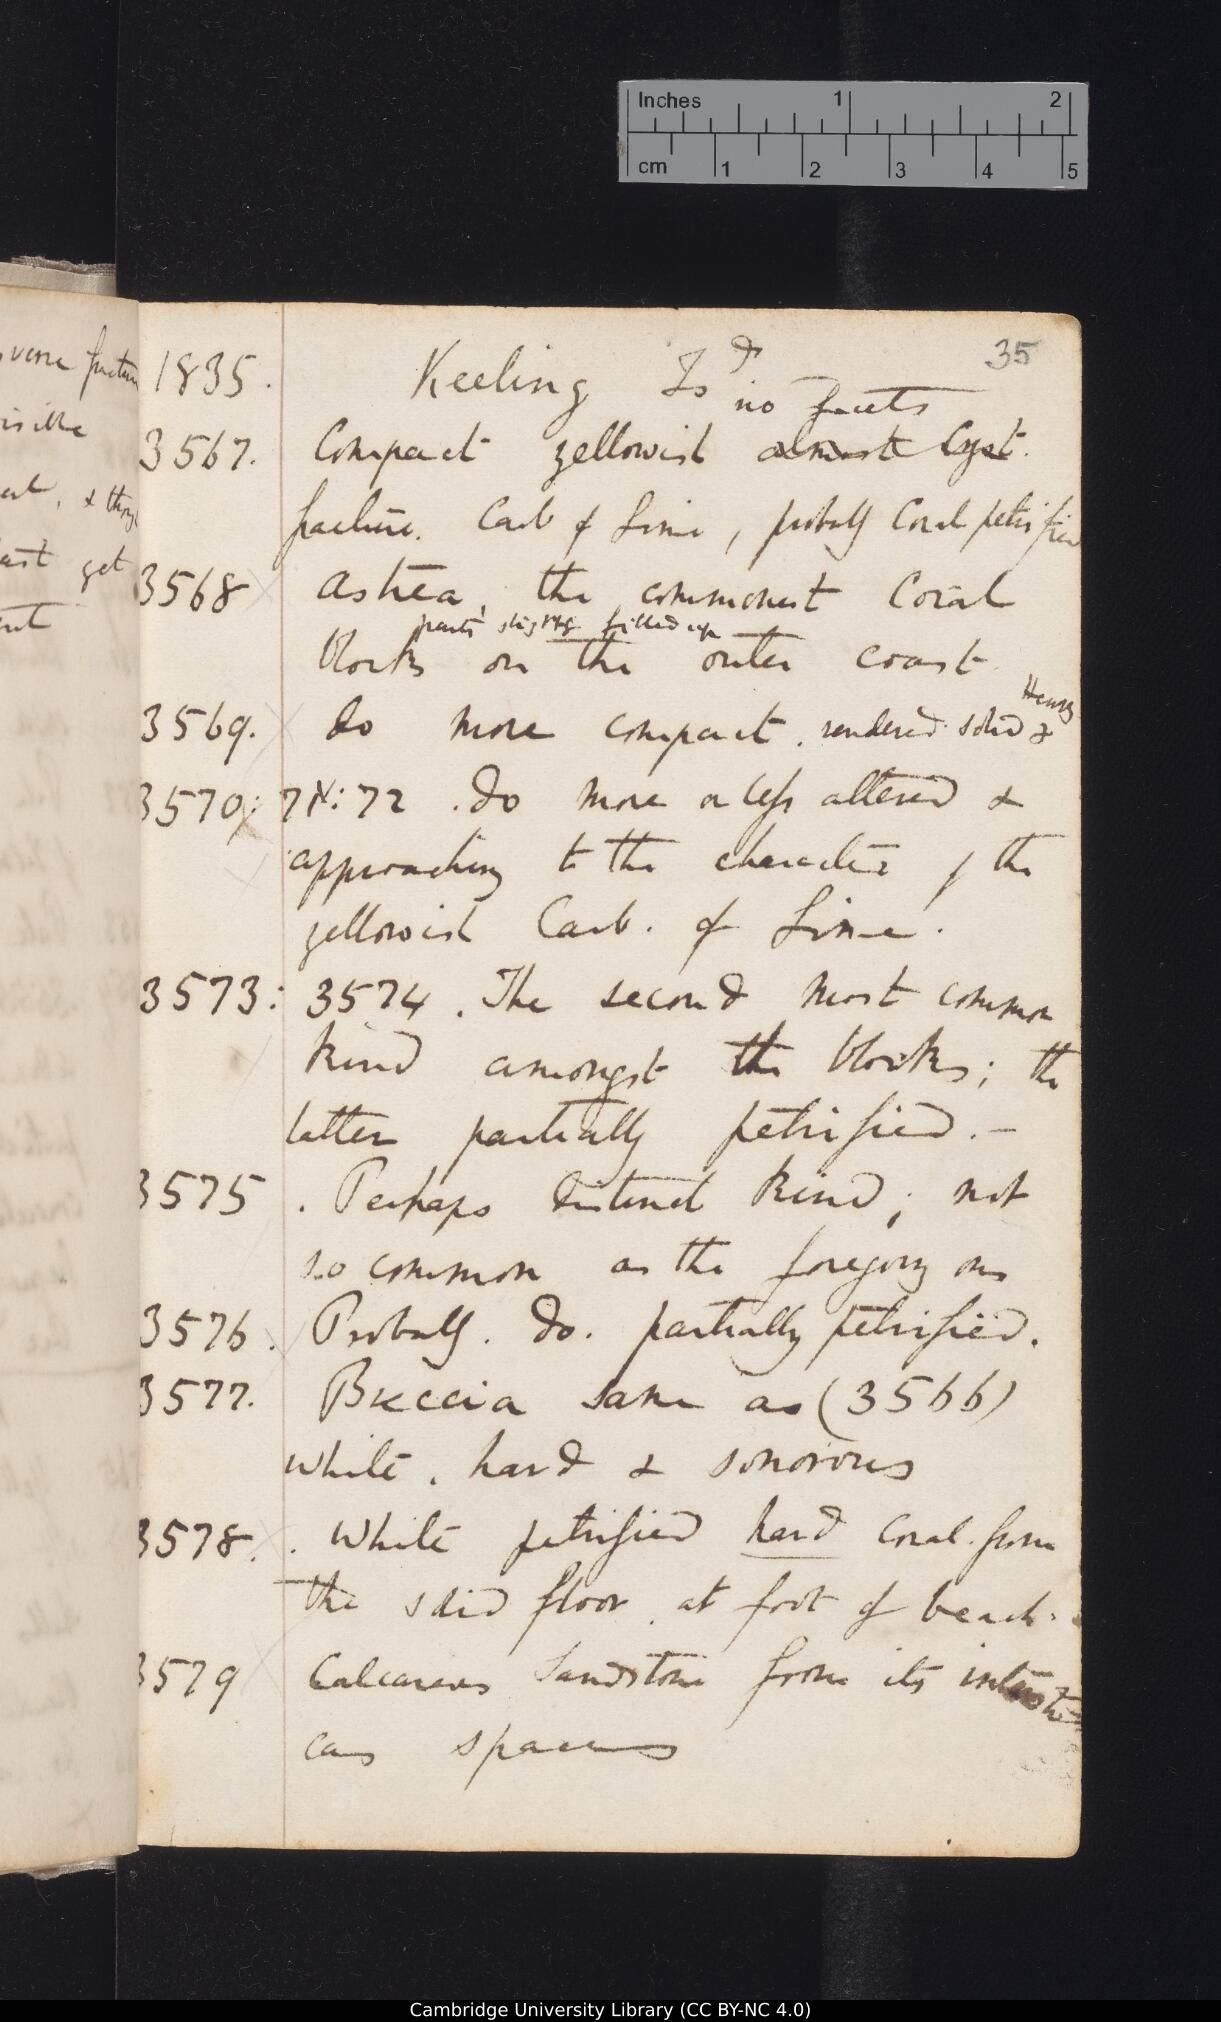 Inches 1 2
cm 1 2 3 4 5
35
1835. Keeling Isd
no facets
3567. Compact yellowish almost Cryst.
fracture. Carb of Lime, probably Coral petrified
3568 Astrea, the commonest Coral
parts slightly filled up
blocks on the outer coast
Heavy
3569. do more compact. rendered solid &
3570: 71: 72 . do more or less altered &
approaching to the character of the
yellowish Carb. of Lime.
3573: 3574. The second most common
kind amongst the blocks; the
latter partially petrified.—
3575. Perhaps distinct kind; not
so common as the foregoing ones
3576. Probably. do. partially petrified.
3577. Breccia same as (3566)
white, hard & sonorous
3578. White petrified hard coral. from
the solid floor at foot of beach.
3579 Calcareous Sandstone from its
spaces
verse fracture
visible
& though
last get
Cambridge University Library (CC BY-NC 4.0)